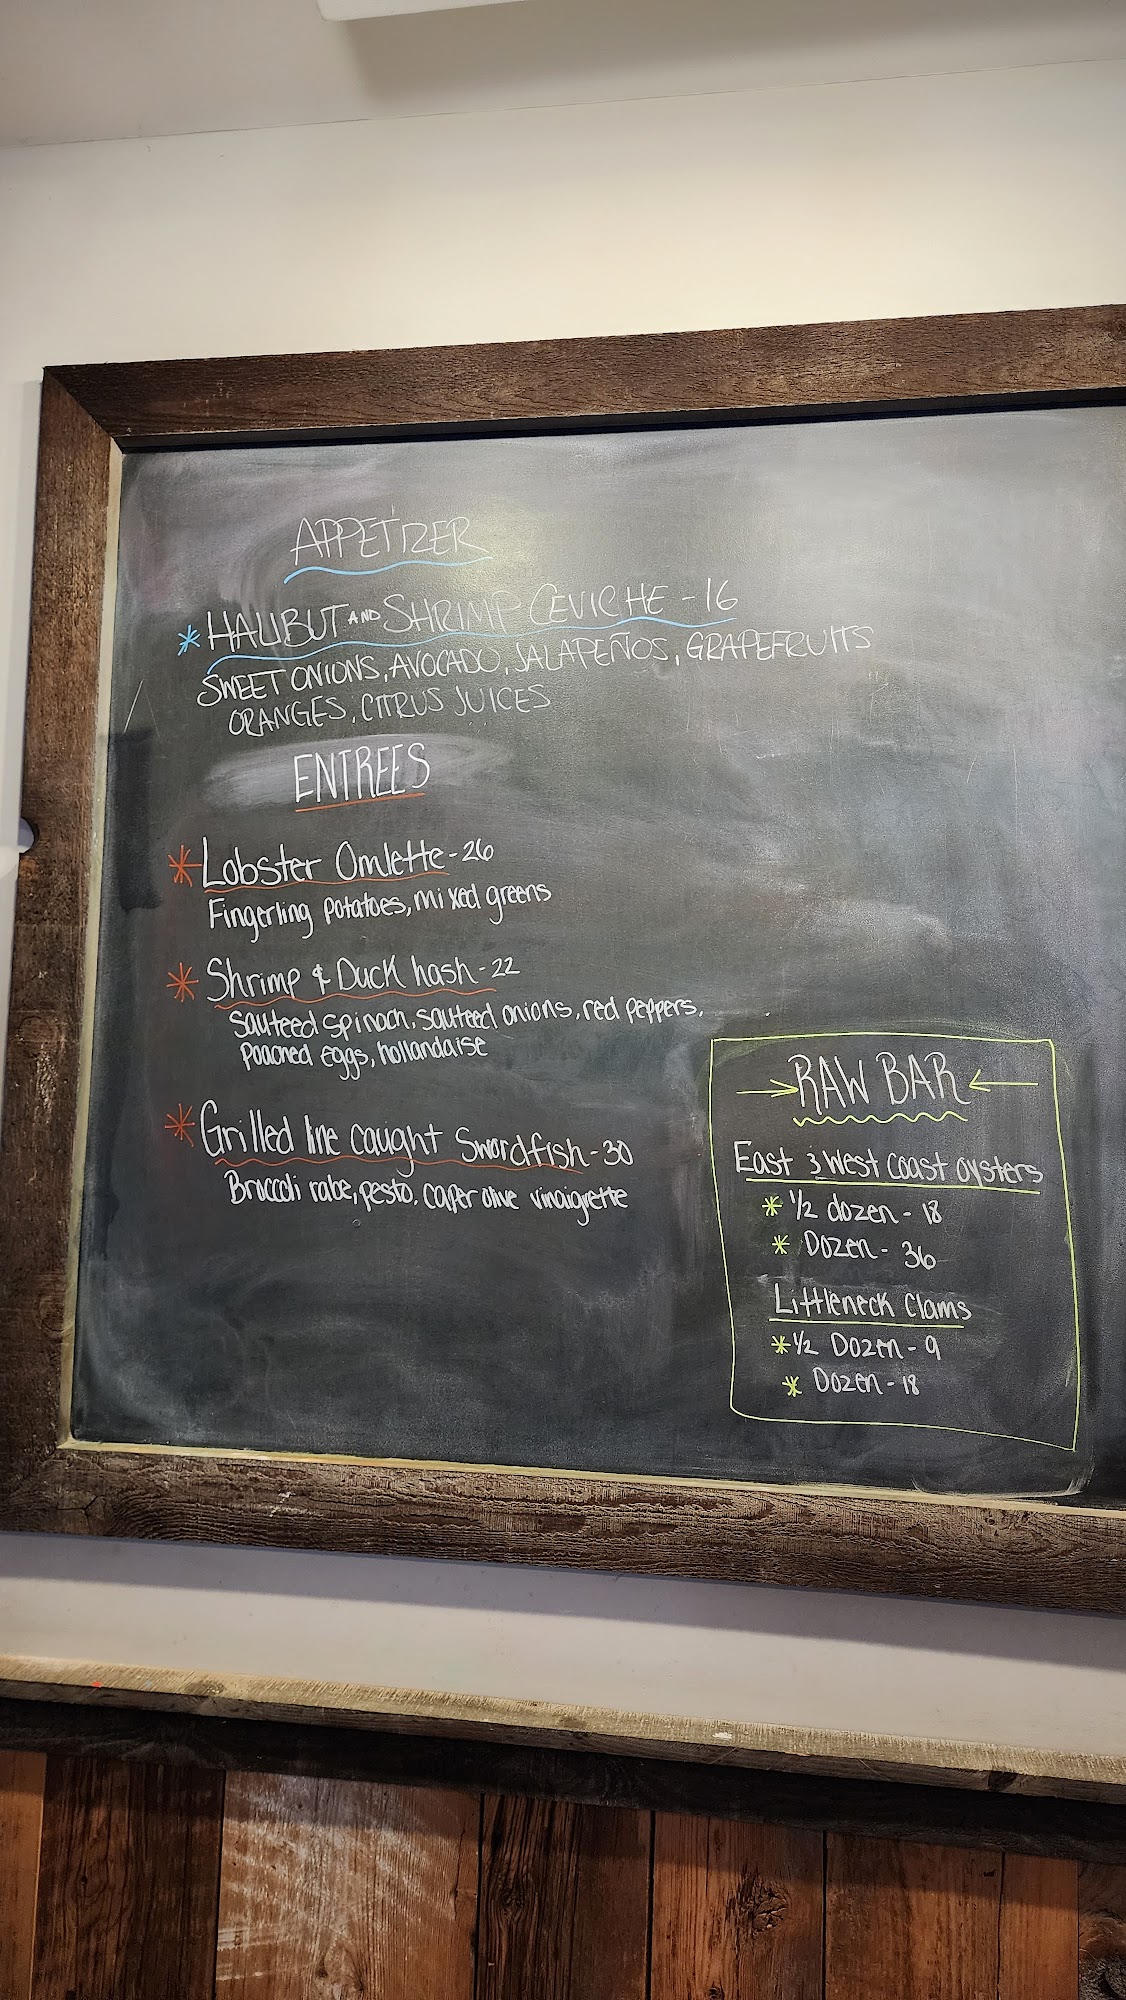 APPETIZER
* HALIBUT AND SHRIMP CEVICHE - 16
SWEET ONIONS, AVOCADO, JALAPEÑOS, GRAPEFRUITS
ORANGES, CITRUS JUICES
ENTREES
* Lobster Omlette - 26
Fingerling potatoes, mixed greens
* Shrimp & Duck hash - 22
Sauteed spinach, sauteed onions, red peppers,
poached eggs, hollandaise
* Grilled line caught Swordfish - 30
Broccoli rabe, pesto, caper olive vinaigrette
→ RAW BAR ←
East & West coast oysters
* 1/2 dozen - 18
* Dozen - 36
Littleneck Clams
* 1/2 Dozen - 9
* Dozen - 18